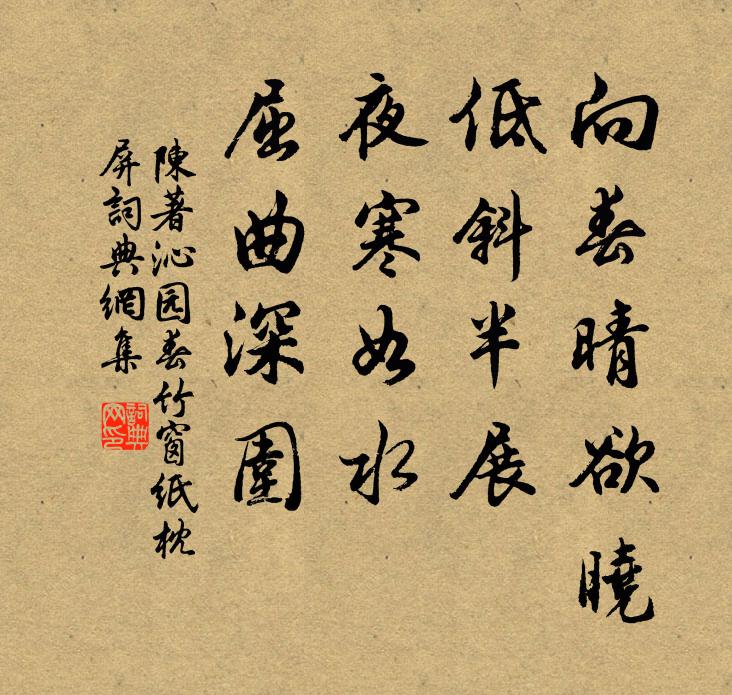 向春晴欲曉
低斜半展
夜寒如水
屈曲深圍
陳著沁园春竹窗紙枕
屏詞典網集
詞典
网印